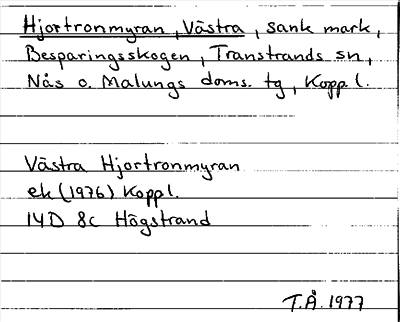 Hjortronmyran, Västra, sank mark,
Besparingsskogen, Transtrands sn,
Nås o. Malungs doms. tg, Kopp. l.
Västra Hjortronmyran
ek (1976) Koppl.
14D 8c Högstrand
T.Å. 1977